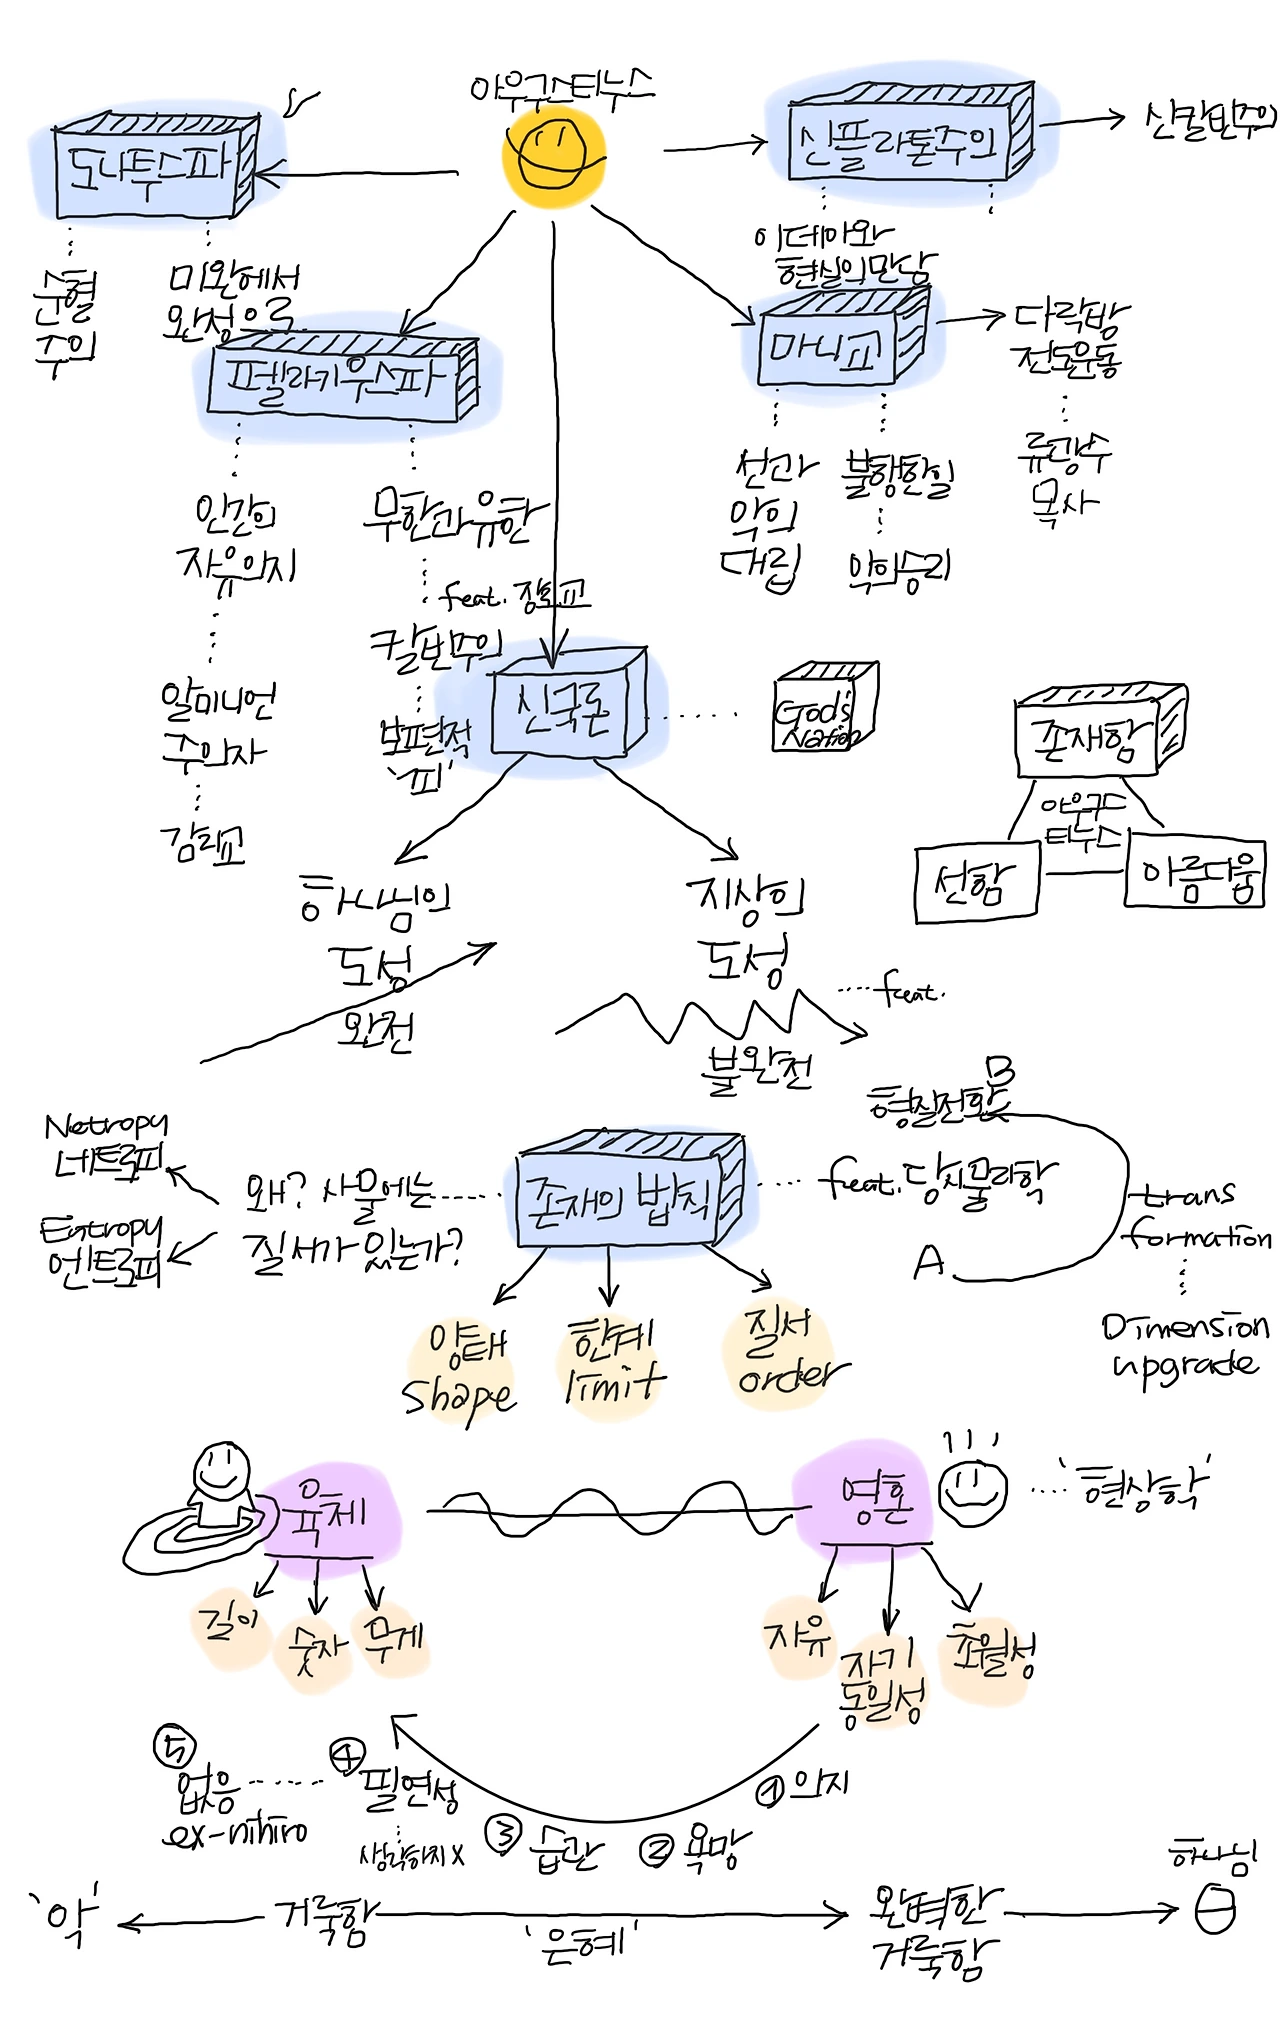 아우구스티누스
도나투스파
신플라톤주의
신칼빈주의
순혈
주의
미완에서
완성으로
이데아와
현실의 만남
펠라기우스파
마니교
다락방
전도운동
류광수
목사
인간의
자유의지
무한과 유한
선과
악의
대립
불행한 일
악의 승리
feat. 장로교
칼빈주의
보편적
'끼'
알미니언
주의자
감리교
신국론
God's
Nation
존재함
아우구스
티누스
선함
아름다움
하나님의
도성
완전
지상의
도성
feat.
불완전
Netropy
네트로피
Entropy
엔트로피
왜? 사물에는
질서가 있는가?
존재의 법칙
feat. 당시 물리학
형질전환
B
A
trans
formation
Dimension
upgrade
양태
shape
한계
limit
질서
order
육체
영혼
'현상학'
길이
숫자
무게
자유
자기
동일성
초월성
⑤
없음
ex-nihiro
④
필연성
생각하지 X
③ 습관
② 욕망
① 의지
'악'
거룩함
'은혜'
완벽한
거룩함
하나님